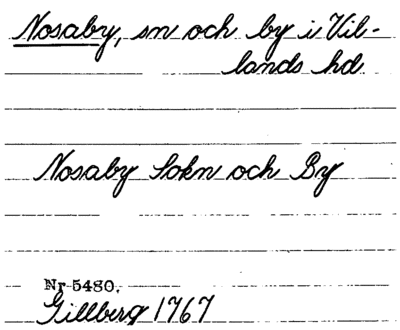 Nosaby, sn och by i Vil-
lands hd
Nosaby Sokn och By
Nr 5480.
Gillberg 1767